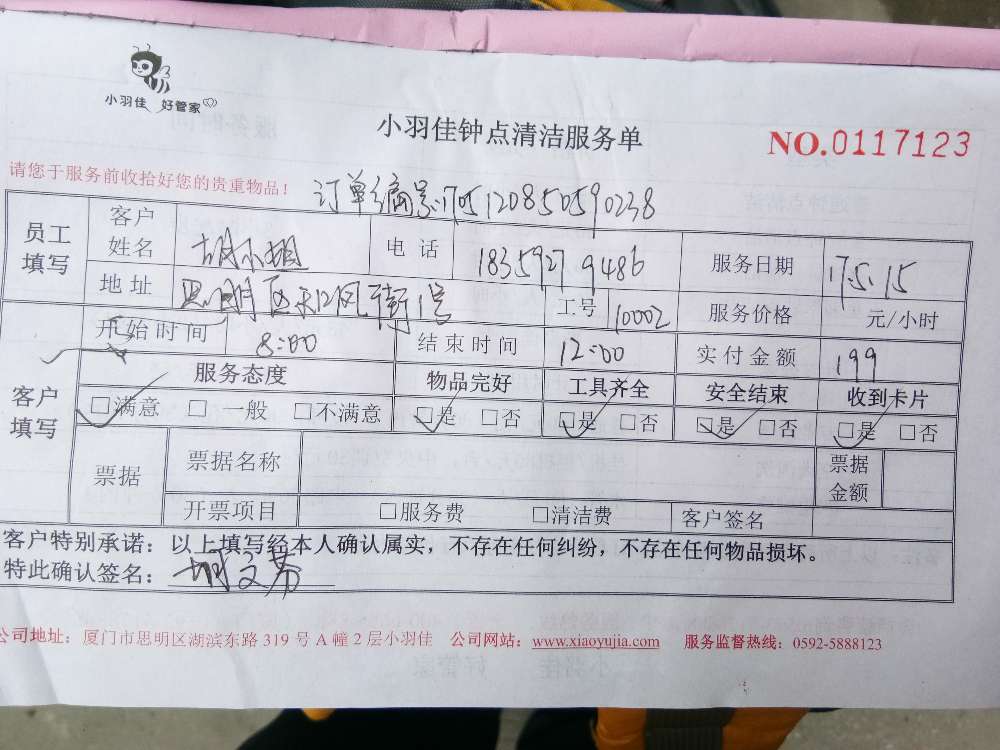 小羽佳 好管家
小羽佳钟点清洁服务单
NO.0117123
请您于服务前收拾好您的贵重物品！
订单编号:1705120850590238
员工填写 客户姓名 胡小姐 电话 18359279486 服务日期 17.5.15
地址 思明区 街1号 工号 10002 服务价格 元/小时
开始时间 8:00 结束时间 12:00 实付金额 199
客户填写 服务态度 物品完好 工具齐全 安全结束 收到卡片
☑满意 □一般 □不满意 ☑是 □否 ☑是 □否 ☑是 □否 ☑是 □否
票据 票据名称 票据金额
开票项目 □服务费 □清洁费 客户签名
客户特别承诺：以上填写经本人确认属实，不存在任何纠纷，不存在任何物品损坏。
特此确认签名：胡文芬
公司地址：厦门市思明区湖滨东路 319 号 A 幢 2 层小羽佳 公司网站：www.xiaoyujia.com 服务监督热线：0592-5888123